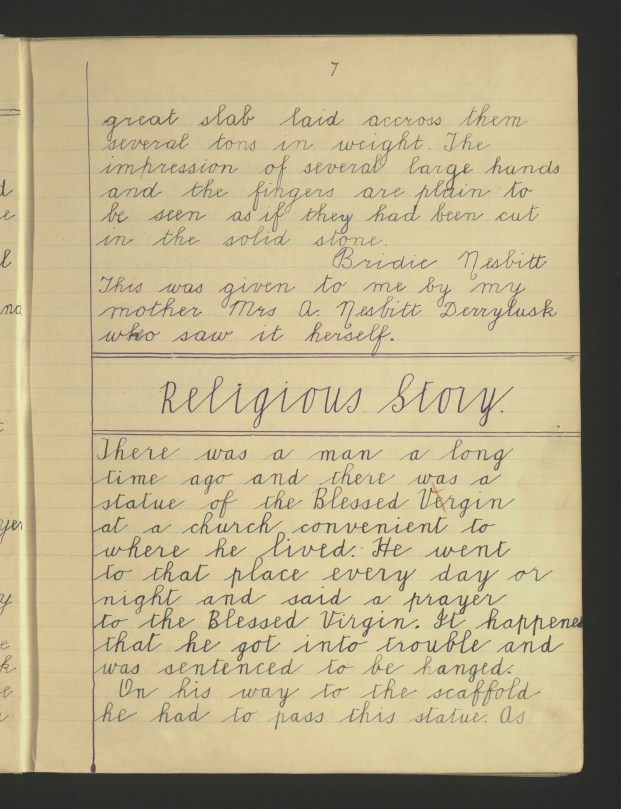 7
great slab laid accross them
several tons in weight. The
impression of several large hands
and the fingers are plain to
be seen as if they had been cut
in the solid stone.
Bridie Nesbitt
This was given to me by my
mother Mrs A. Nesbitt Derrylusk
who saw it herself.
Religious Story.
There was a man a long
time ago and there was a
statue of the Blessed Vergin
at a church convenient to
where he lived. He went
to that place every day or
night and said a prayer
to the Blessed Virgin. It happened
that he got into trouble and
was sentenced to be hanged.
On his way to the scaffold
he had to pass this statue. As